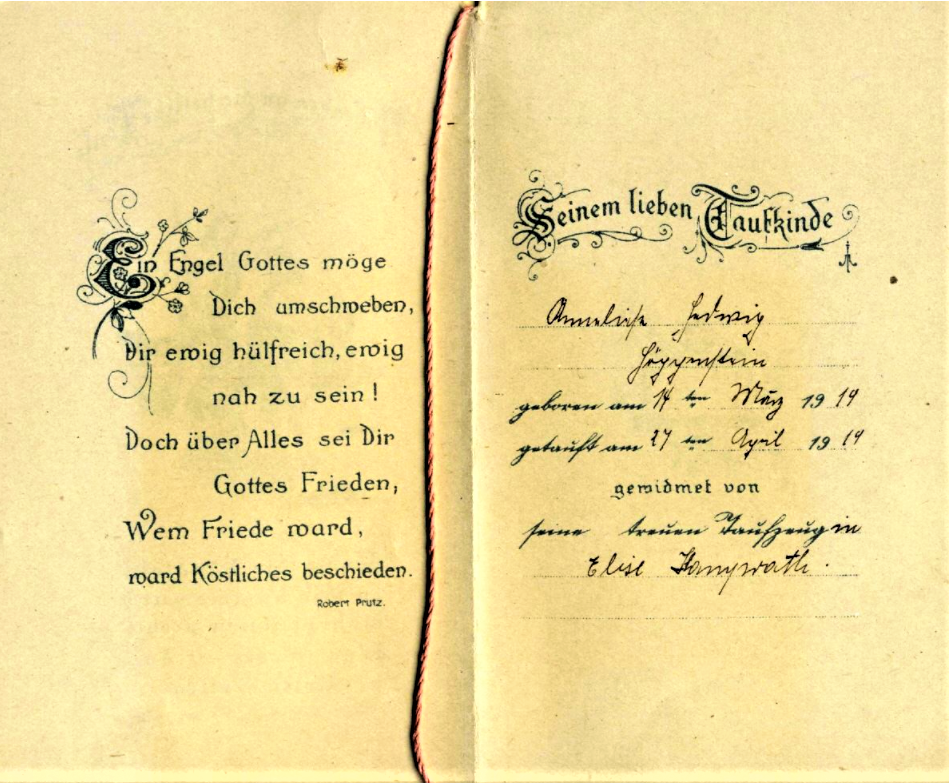 Ein Engel Gottes möge
Dich umschweben,
Dir ewig hülfreich, ewig
nah zu sein!
Doch über Alles sei Dir
Gottes Frieden,
Wem Friede ward,
ward Köstliches beschieden.
Robert Prutz.
Seinem lieben Taufkinde
Anneliese Hedwig
Höppenstein
geboren am 14 ten März 1914
getauft am 27 ten April 1914
gewidmet von
seine treuen Taufzeugin
Elise